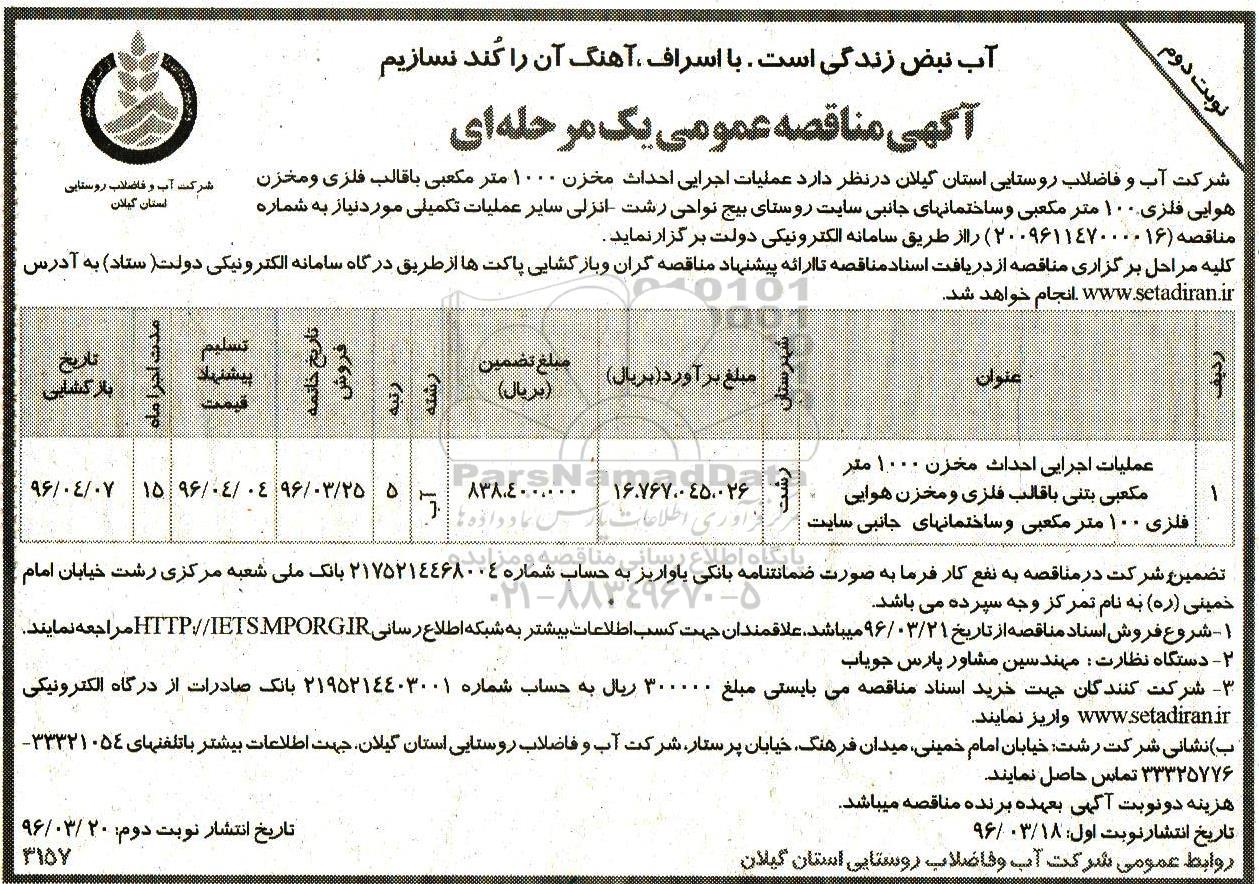 نوبت دوم
آب نبض زندگی است . با اسراف ،آهنگ آن را کُند نسازیم
آگهی مناقصه عمومی یک مرحله‌ای
شرکت آب و فاضلاب روستایی
استان گیلان
شرکت آب و فاضلاب روستایی استان گیلان درنظر دارد عملیات اجرایی احداث مخزن ۱۰۰۰ متر مکعبی باقالب فلزی ومخزن
هوایی فلزی ۱۰۰ متر مکعبی وساختمانهای جانبی سایت روستای بیج نواحی رشت -انزلی سایر عملیات تکمیلی موردنیاز به شماره
مناقصه (۲۰۰۹۶۱۱۴۷۰۰۰۰۱۶) رااز طریق سامانه الکترونیکی دولت برگزارنماید .
کلیه مراحل برگزاری مناقصه ازدریافت اسنادمناقصه تاارائه پیشنهاد مناقصه گران وبازگشایی پاکت ها ازطریق درگاه سامانه الکترونیکی دولت( ستاد) به آدرس
www.setadiran.ir .انجام خواهد شد.
ردیف
عنوان
شهرستان
مبلغ برآورد(بریال)
مبلغ تضمین
(بریال)
رشته
رتبه
تاریخ خاتمه
فروش
تسلیم
پیشنهاد
قیمت
مدت اجرا ماه
تاریخ
بازگشایی
۱
عملیات اجرایی احداث مخزن ۱۰۰۰ متر
مکعبی بتنی باقالب فلزی ومخزن هوایی
فلزی ۱۰۰ متر مکعبی وساختمانهای جانبی سایت
رشت
۱۶.۷۶۷.۰۴۵.۰۲۶
۸۳۸.۴۰۰.۰۰۰
آب
۵
۹۶/۰۳/۲۵
۹۶/۰۴/ ۰۴
۱۵
۹۶/۰۴/۰۷
ParsNamadData
مرکز فرآوری اطلاعات پارس نماد داده‌ها
پایگاه اطلاع رسانی مناقصه و مزایده
۰۲۱-۸۸۳۴۹۶۷۰-۵
تضمین شرکت درمناقصه به نفع کار فرما به صورت ضمانتنامه بانکی یاواریز به حساب شماره ۲۱۷۵۲۱۴۴۶۸۰۰۴ بانک ملی شعبه مرکزی رشت خیابان امام
خمینی (ره) به نام تمرکز وجه سپرده می باشد.
۱-شروع فروش اسناد مناقصه از تاریخ ۹۶/۰۳/۲۱ میباشد،علاقمندان جهت کسب اطلاعات بیشتر به شبکه اطلاع رسانی HTTP://IETS.MPORG.IR مراجعه نمایند.
۲- دستگاه نظارت : مهندسین مشاور پارس جویاب
۳- شرکت کنندگان جهت خرید اسناد مناقصه می بایستی مبلغ ۳۰۰۰۰۰ ریال به حساب شماره ۲۱۹۵۲۱۴۴۰۳۰۰۱ بانک صادرات از درگاه الکترونیکی
www.setadiran.ir واریز نمایند.
ب)نشانی شرکت رشت: خیابان امام خمینی، میدان فرهنگ، خیابان پرستار،شرکت آب و فاضلاب روستایی استان گیلان، جهت اطلاعات بیشتر باتلفنهای ۳۳۳۲۱۰۵۴-
۳۳۳۲۵۷۷۶ تماس حاصل نمایند.
هزینه دونوبت آگهی بعهده برنده مناقصه میباشد.
تاریخ انتشارنوبت اول: ۹۶/ ۰۳/۱۸
تاریخ انتشار نوبت دوم: ۲۰ /۹۶/۰۳
روابط عمومی شرکت آب وفاضلاب روستایی استان گیلان
۳۱۵۷